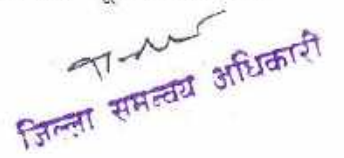 जिल्ला समन्वय अधिकारी